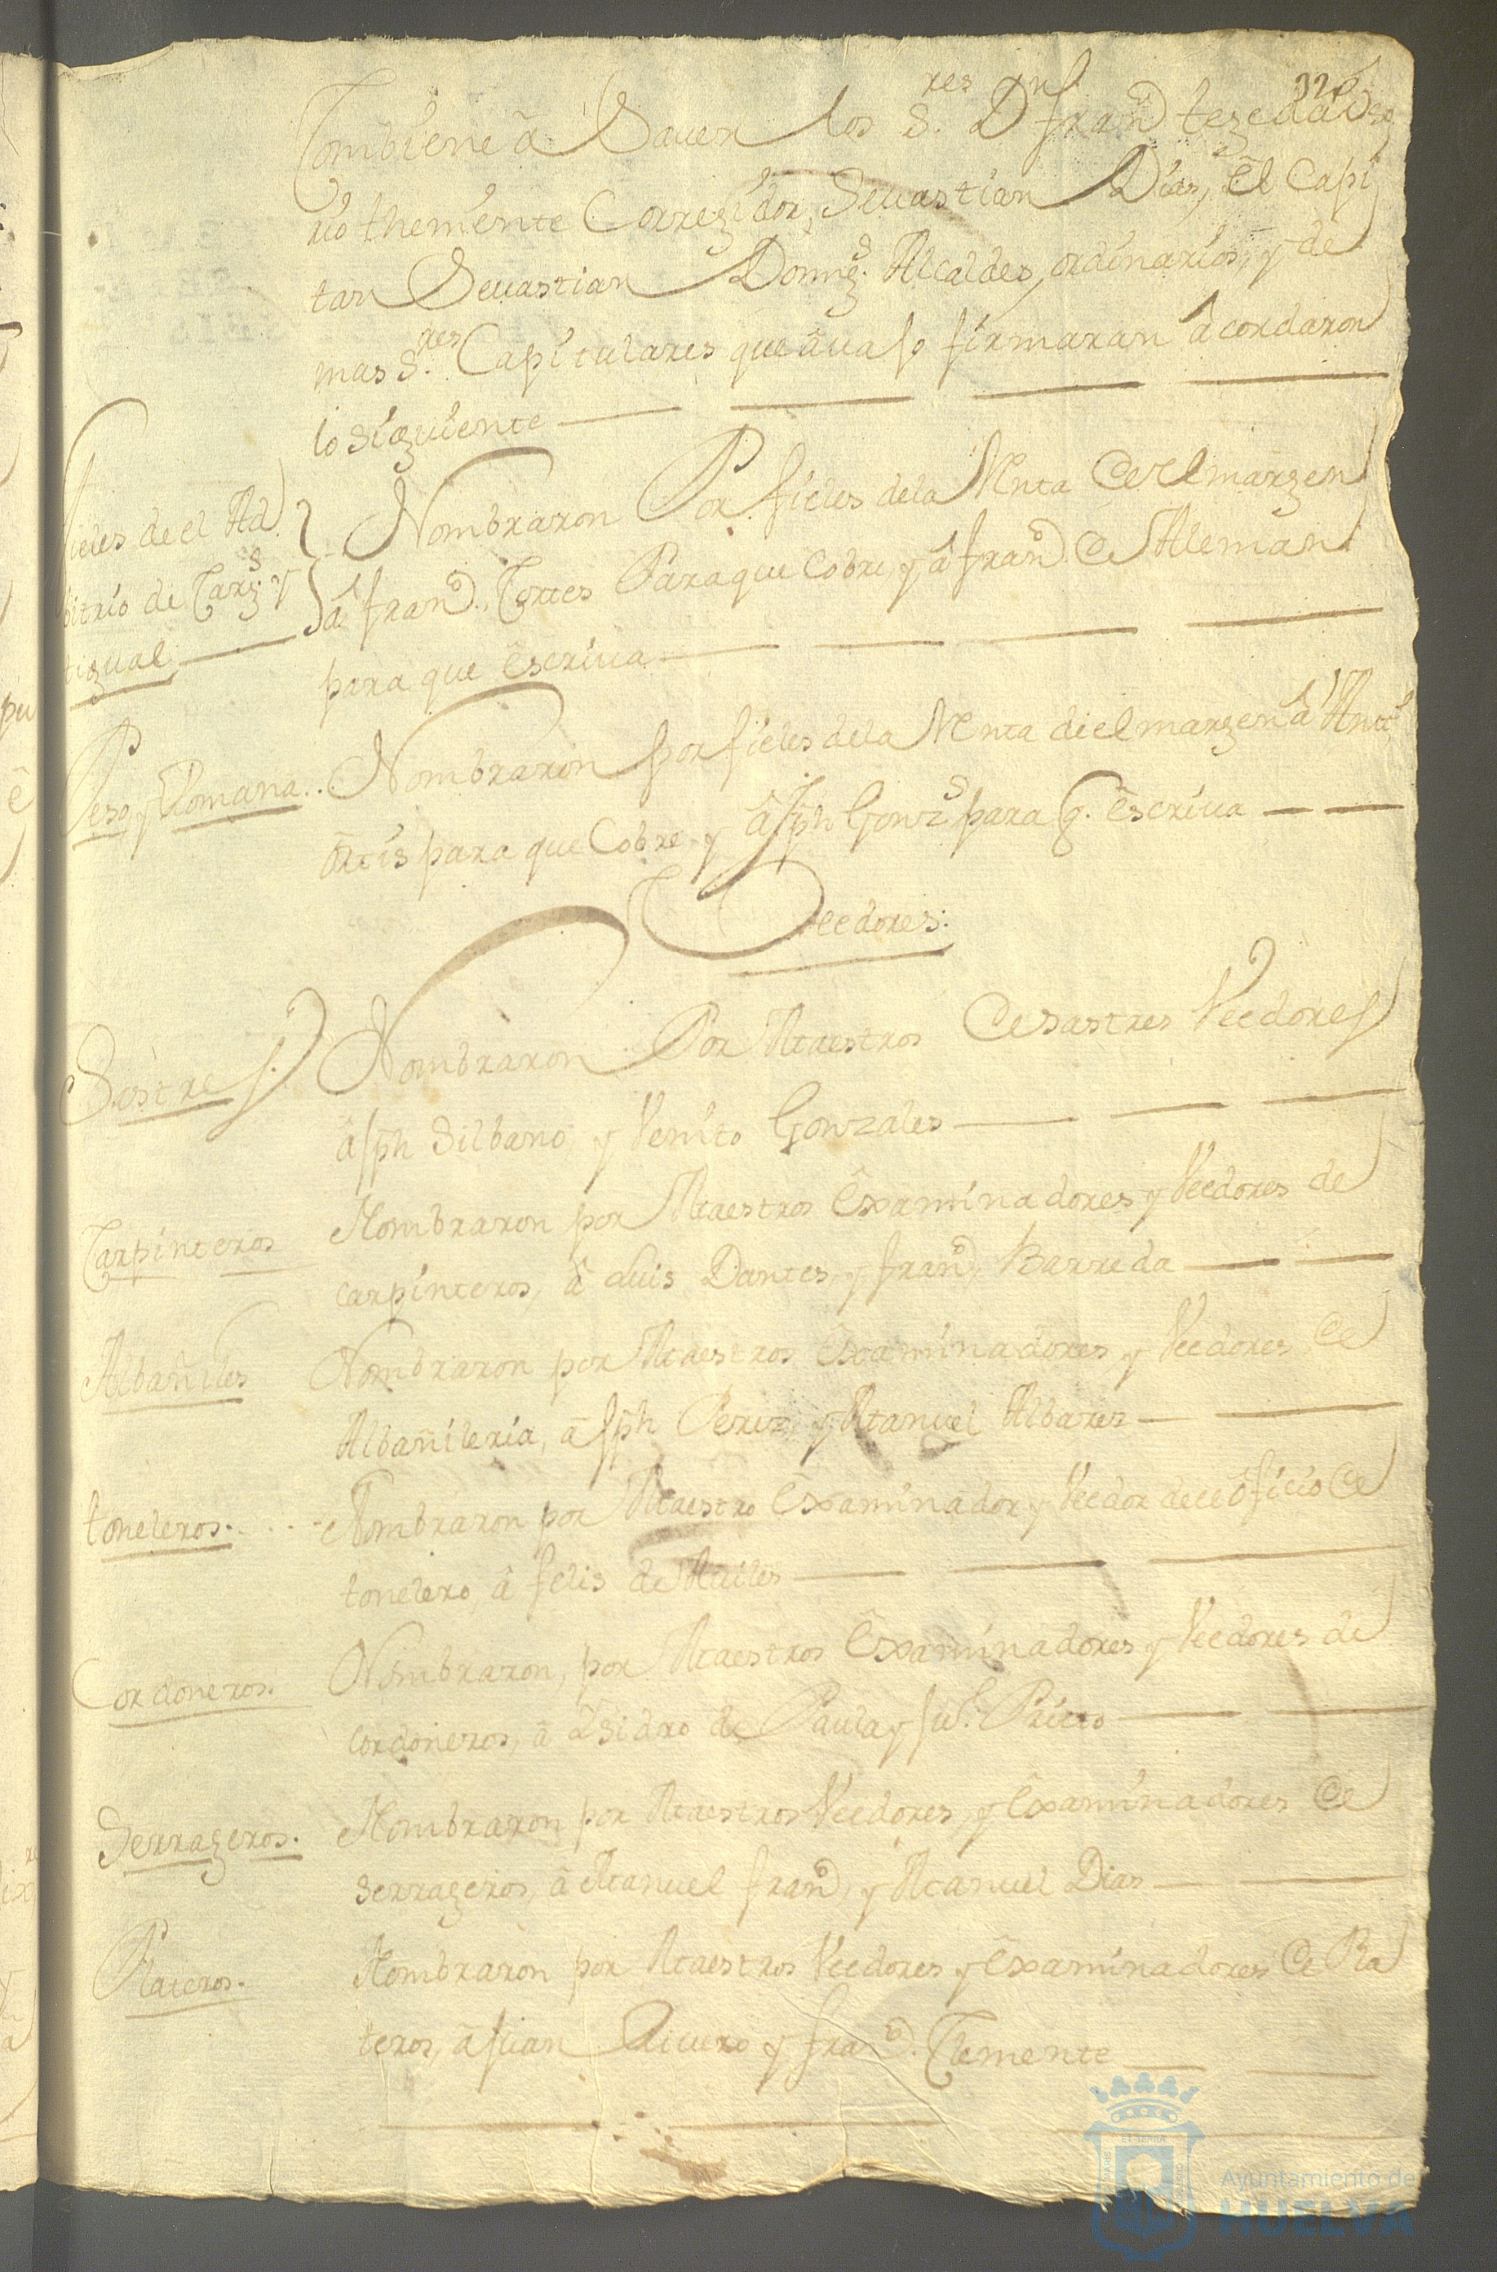 Combiene â Sauer los S.res Dn fran.co tezeda Oso
rio theniente Corregidor, Seuastian Dias, êl Capi
tan Seuastian Domg.s Alcaldes ordinarios, y de
mas S.res Capitulares que âuaso firmaran âcordaron
lo Siguiente
fieles de el Ad
bitrio de Carg.s y
tigual
Nombraron Por fieles dela Renta de el margen
â fran.co Cortes Paraque Cobre, y â fran.co de Aleman
para que êscriua
Peso y Romana..
Nombraron por fieles dela Renta de el margen â Antt.o
ôrtis para que Cobre, y â Jph Gonz.s para q. êscriua
Veedores.
Sastres.
Nombraron Por Maestros de sastres Veedores
â Jph Silbano, y Venito Gonzales
Carpinteros
Nombraron por Maestros êxaminadores y Veedores de
carpinteros, â Luis Dantes, y fran.co Barreda
Albañiles
Nombraron por Maestros êxaminadores, y Veedores de
Albañileria, â Jph Perez, y Manuel Albarez
toneleros.
Nombraron por Maestro êxaminador y Veedor de el ôficio de
tonelero, â felis de
Cordoneros.
Nombraron, por Maestros êxaminadores y Veedores de
cordoneros, â Isidro de Paula y Ju.o Prieto
Serrageros.
Nombraron por Maestros Veedores, y êxaminadores de
serrageros, â Manuel fran.co, y Manuel Dias
Plateros.
Nombraron por Maestros Veedores y êxaminadores de Pla
teros, â Juan y fran.co Clemente
Ayuntamiento de
HUELVA